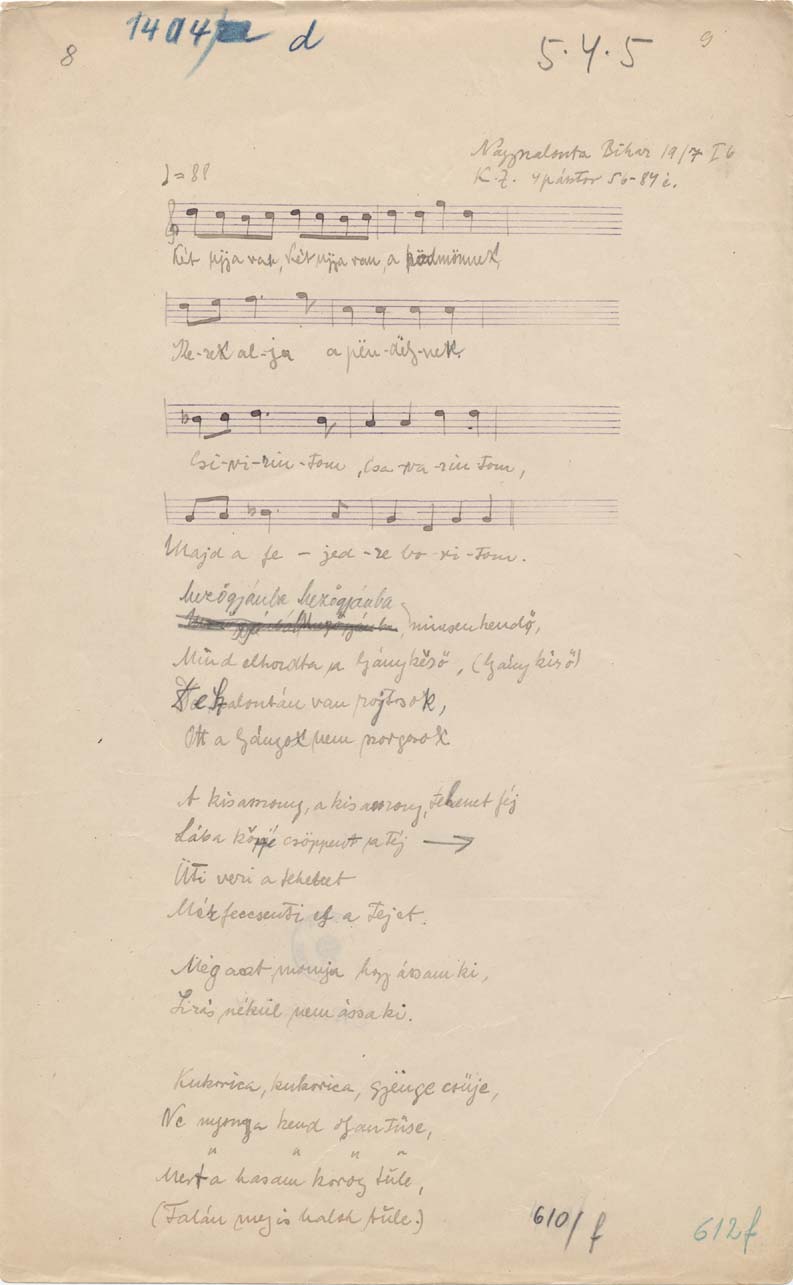 8
1404/ d
5.4.5
9
Nagyszalonta Bihar 1917 I 6
K.Z. 4 pásztor 56-84 é.
♩=88
Két ujja van, két ujja van, a ködmönnek,
Ke-rek al-ja a pën-dëly-nek.
Csi-vi-rin-tom, Csa-va-rin-tom,
Majd a fe-jed-re bo-ri-tom.
Mezőgjánba Mezőgjánba
mincsen kendő,
Mind elhordta a Gánykéső, (Gánykiső)
De Szalontán van rojtosok,
Ott a Gányok nem szorgosok
A kisasszony, a kisasszony, tehenet fej
Lába közé csöppent a tej →
Üti veri a tehenet
Mér feccsenti el a tejet.
Még aszt mongya hogy ássam ki,
Sirás nékül nem ássa ki.
Kukorica, kukorica, gyënge csüje,
Ne nyomja kend ojan tüse,
" " " "
Mert a hasam korog tűle,
(Talán meg is halok tűle.)
610/f
612f